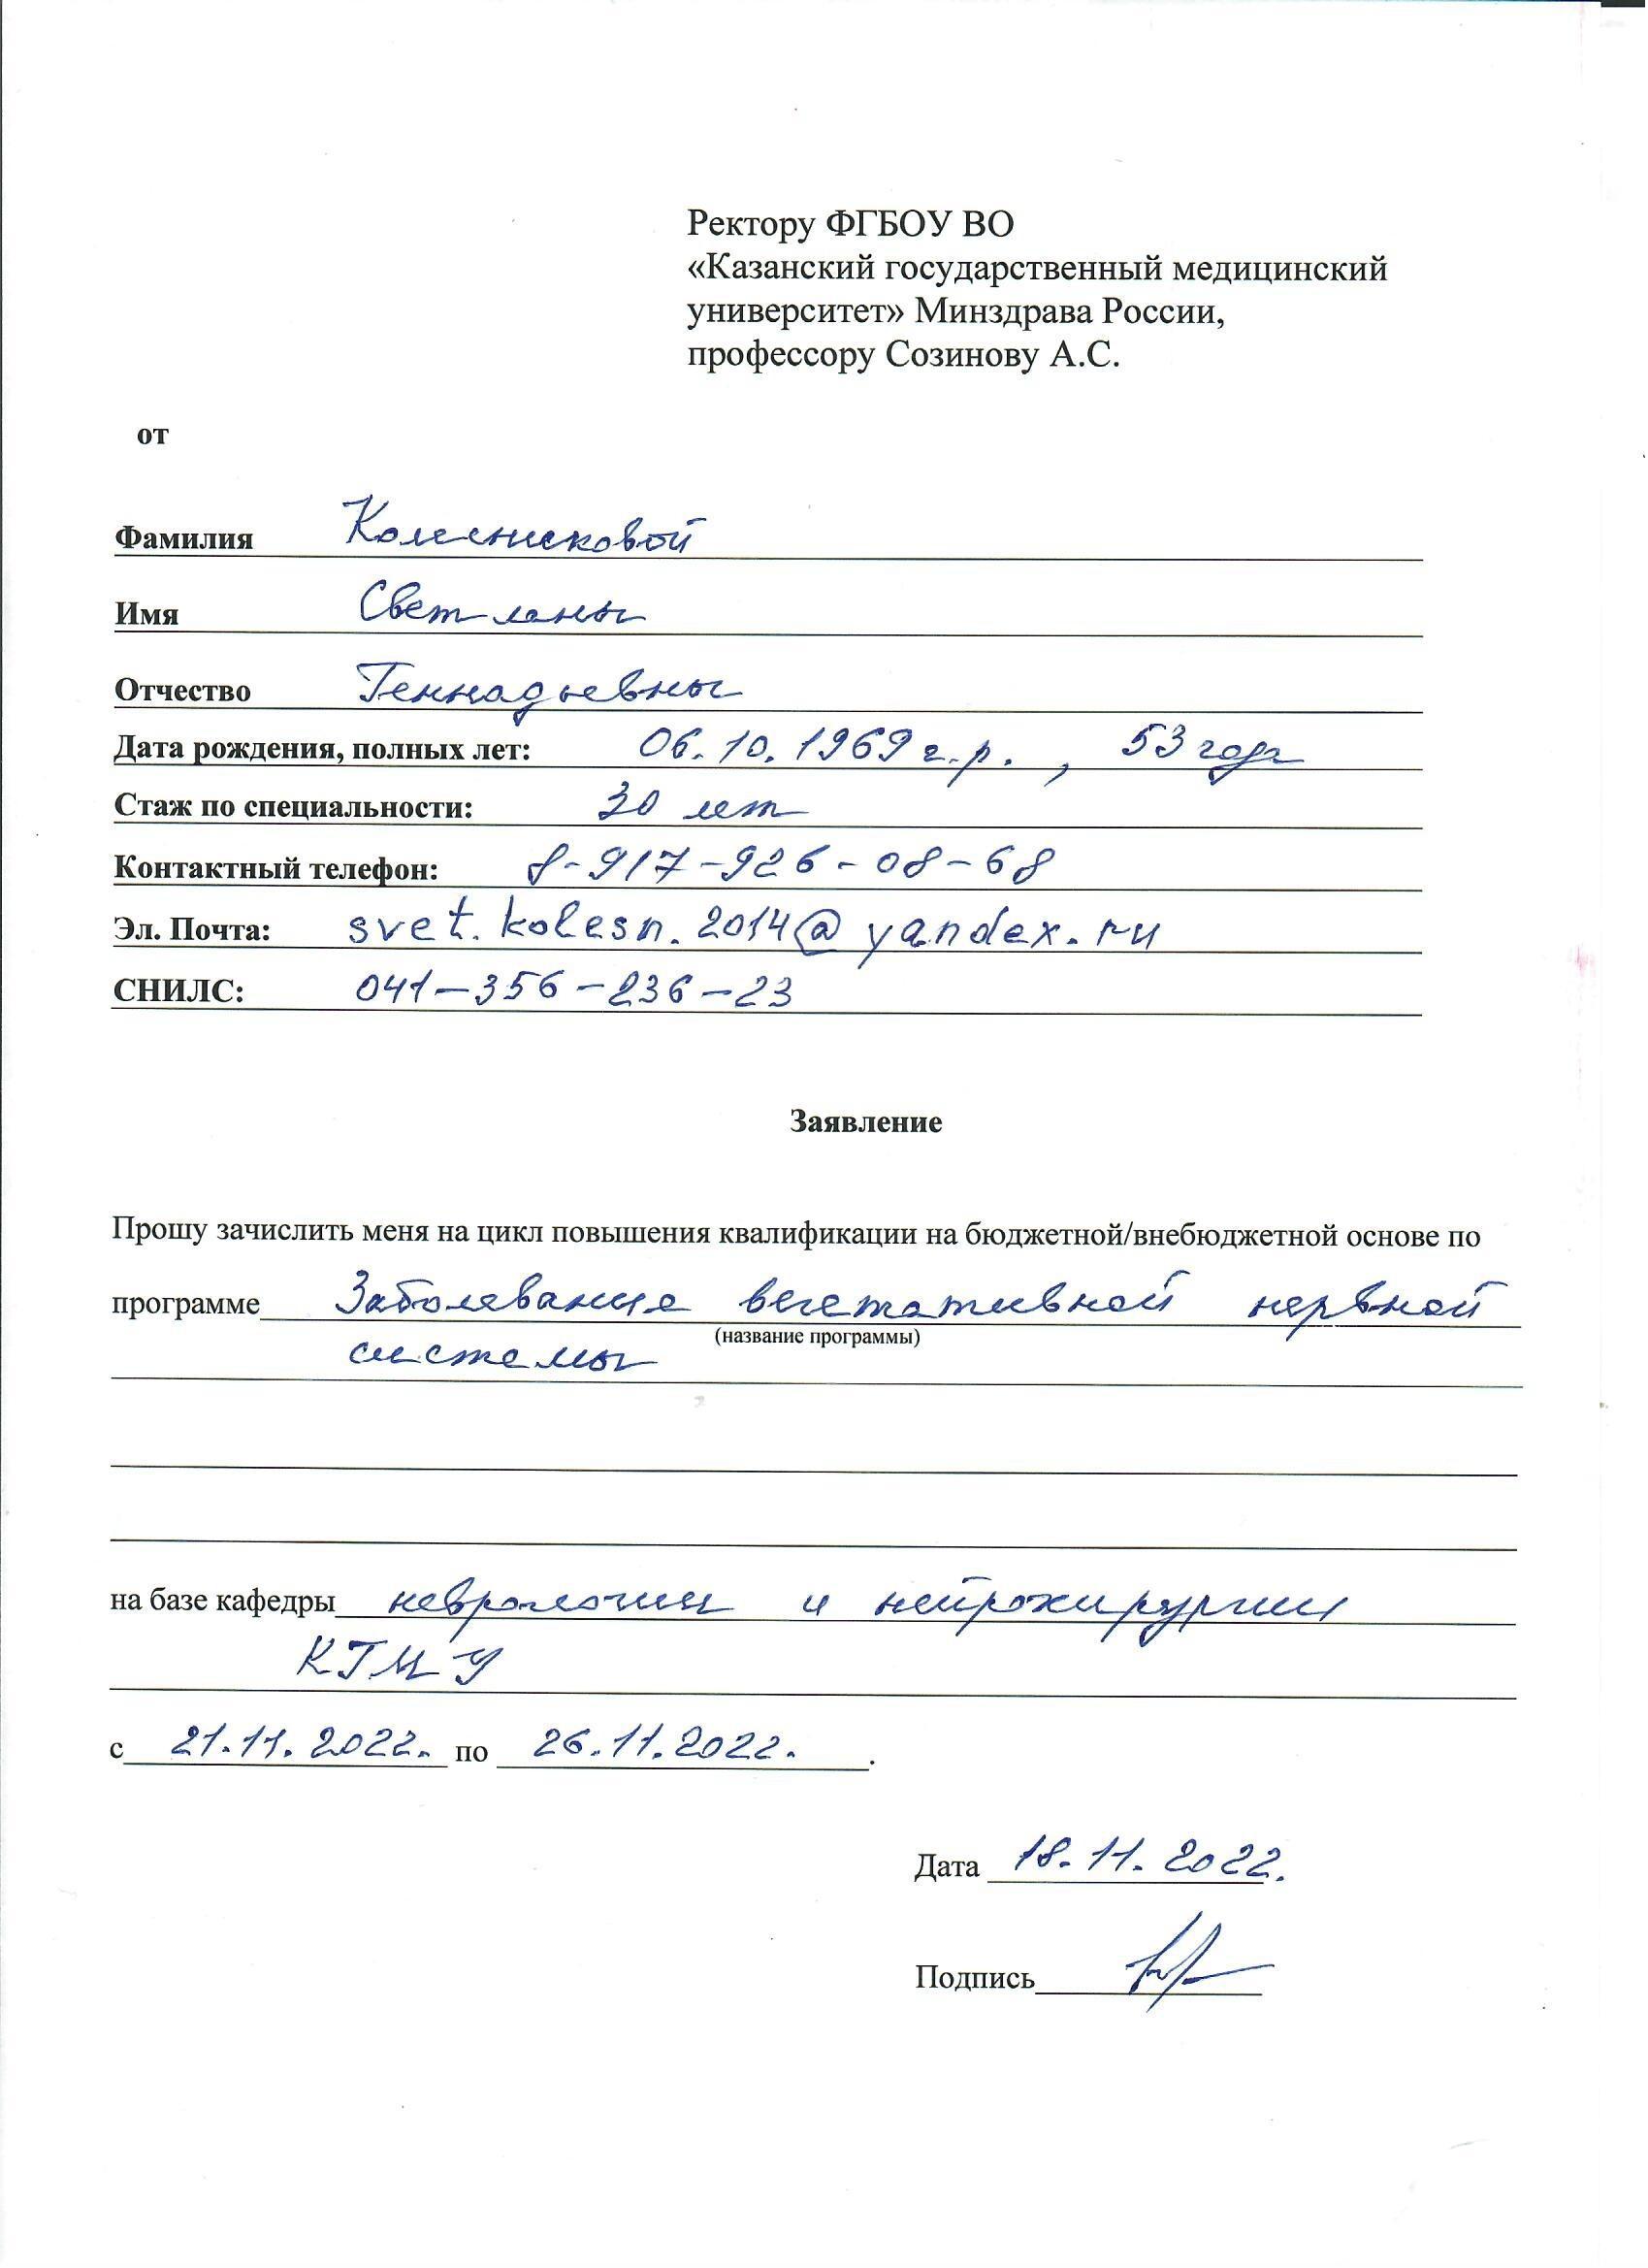 Ректору ФГБОУ ВО
«Казанский государственный медицинский
университет» Минздрава России,
профессору Созинову А.С.
от
Фамилия Колесниковой
Имя Светланы
Отчество Геннадьевны
Дата рождения, полных лет: 06.10.1969 г.р., 53 года
Стаж по специальности: 30 лет
Контактный телефон: 8-917-926-08-68
Эл. Почта: svet.kolesn.2014@yandex.ru
СНИЛС: 041-356-236-23
Заявление
Прошу зачислить меня на цикл повышения квалификации на бюджетной/внебюджетной основе по
программе Заболевание вегетативной нервной
(название программы)
системы
на базе кафедры неврологии и нейрохирургии
КГМУ
с 21.11.2022. по 26.11.2022. .
Дата 18.11.2022.
Подпись